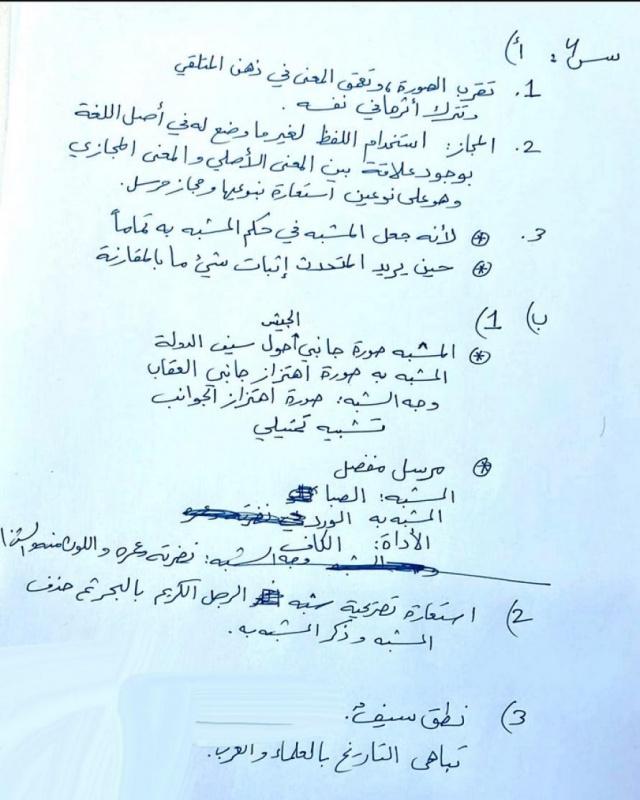 س٢: أ)
1. تقرب الصورة، وتعمق المعنى في ذهن المتلقي
وتترك أثرها في نفسه.
2. المجاز: استخدام اللفظ لغير ما وضع له في أصل اللغة
بوجود علاقة بين المعنى الأصلي والمعنى المجازي
وهو على نوعين استعارة بنوعيها ومجاز مرسل.
3. * لأنه جعل المشبه في حكم المشبه به تماماً
* حين يريد المتحدث إثبات شيء ما بالمقارنة
ب) 1)
* المشبه صورة جانبي الجيش حول سيف الدولة
المشبه به صورة اهتزاز جانبي العقاب
وجه الشبه: صورة اهتزاز الجوانب
تشبيه تمثيلي
* مرسل مفصل
المشبه: الصبا
المشبه به الورد
الأداة: الكاف
وجه الشبه: نضرته وعمره واللون منه
2) استعارة تصريحية شبه الرجل الكريم بالبحر ثم حذف
المشبه وذكر المشبه به.
3) نطق سيف.
تباهى التاريخ بالعلماء والعرب.